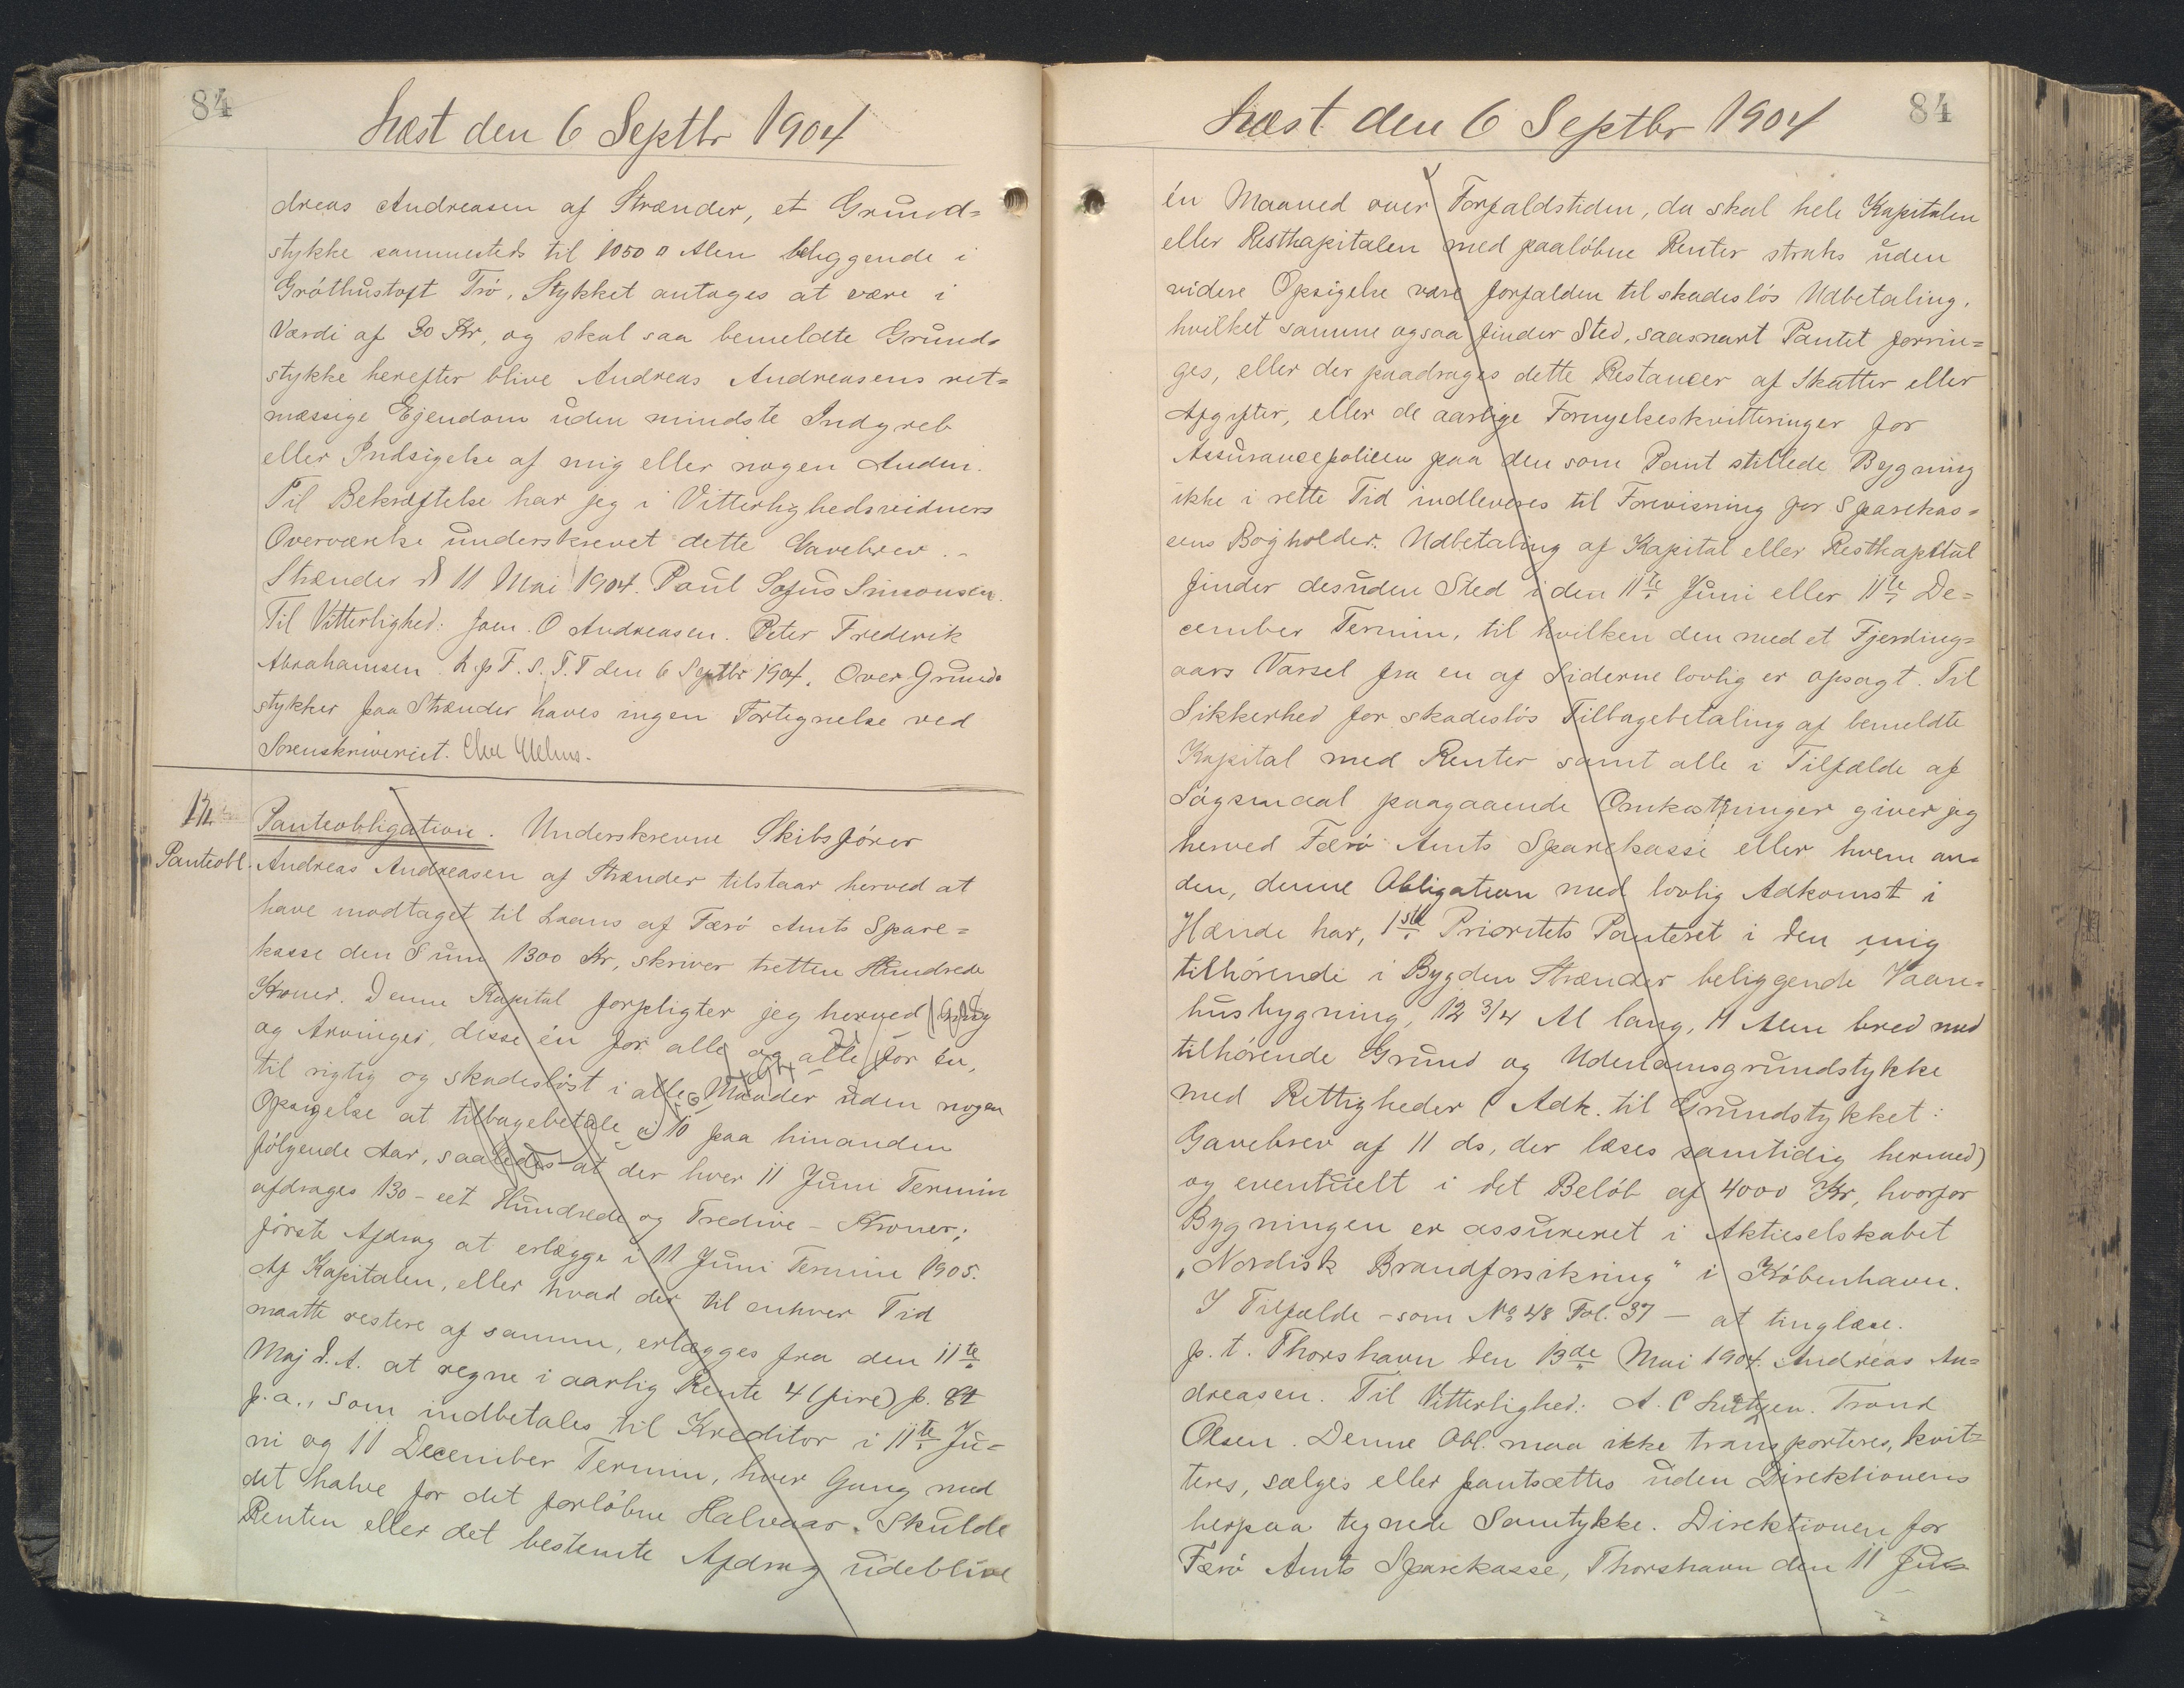 84
Læst den 6 Septbr 1904
dreas Andreasen af Strænder, et Grund=
stykke sammesteds til 1050 □ Alen beliggende i
Gróthustoft Trö, Stykket antages at være i
Værdi af 20 Kr, og skal saa bemeldte Grund=
stykke herefter blive Andreas Andreasens ret=
mæssige Ejendom uden mindste Indgreb
eller Indsigelse af mig eller nogen Anden.
Til Bekræftelse har jeg i Vitterlighedsvidners
Overværelse underskrevet dette Gavebrev. -
Strænder d 11 Mai 1904. Paul Sofus Simonsen.
Til Vitterlighed: Joen. O Andreasen. Peter Frederik
Abrahamsen. L. p F. S. T. T den 6 Septbr 1904. Over Grund=
stykker paa Strænder haves ingen Fortegnelse ved
Sorenskriveriet.
Panteobl.
Panteobligation. Underskrevne Skibsfører
Andreas Andreasen af Strænder tilstaar herved at
have modtaget til Laans af Færø Amts Spare=
kasse den Sum 1300 Kr, skriver tretten Hundrede
Kroner. Denne Kapital forpligter jeg herved mig
og Arvinger, desse én for alle og alle for én,
til rigtig og skadesløst i alle Maader uden nogen
Opsigelse at tilbagebetale i 10 paa hinanden
følgende Aar, saaledes at der hver 11 Juni Termin
afdrages 130 - eet Hundrede og Tredive - Kroner;
første Afdrag at erlægge i 11 Juni Termin 1905.
Af Kapitalen, eller hvad der til enhver Tid
maatte restere af samme, erlægges fra den 11te
Maj d. A. at regne i aarlig Rente 4 (fire) p. Ct
p. a., som indbetales til Kreditor i 11te Ju=
ni og 11 December Termin, hver Gang med
det halve for det forløbne Halvaar. Skulde
Renten eller det bestemte Afdrag udeblive
84
Læst den 6 Septbr 1904
én Maaned over Forfaldstiden, da skal hele Kapitalen
eller Restkapitalen med paaløbne Renter straks uden
videre Opsigelse være forfalden til skadesløs Udbetaling,
hvilket samme ogsaa finder Sted, saasnart Pantet forrin=
ges, eller der paadrages dette Restancer af Skatter eller
Afgifter, eller de aarlige Fornyelseskvitteringer for
Assurancepolicen paa den som Pant stillede Bygning
ikke i rette Tid indleveres til Forevisning for Sparekas=
sens Bogholder. Udbetaling af Kapital eller Restkapital
finder desuden Sted i den 11te Juni eller 11te De=
cember Termin, til hvilken den med et Fjerding=
aars Varsel fra en af Siderne lovlig er opsagt. Til
Sikkerhed for skadesløs Tilbagebetaling af bemeldte
Kapital med Renter samt alle i Tilfælde af
Søgsmaal paagaaende Omkostninger giver jeg
herved Færø Amts Sparekasse eller hvem an=
den, denne Obligation med lovlig Adkomst i
Hænde har, 1ste Prioritets Panteret i den mig
tilhørende i Bygden Strænder beliggende Vaan=
husbygning, 12 3/4 Al lang, 11 Alen bred med
tilhørende Grund og Udenomsgrundstykke
med Rettigheder (Adk. til Grundstykket:
Gavebrev af 11 ds, der læses samtidig hermed)
og eventuelt i det Beløb af 4000 Kr, hvorfor
Bygningen er assureret i Aktieselskabet
„Nordisk Brandforsikring" i København.
I Tilfælde - som No 48 Fol. 37 - at tinglæse.
p. t. Thorshavn den 13de Mai 1904. Andreas An=
dreasen. Til Vitterlighed: A. C Lützen. Trond
Olsen. Denne Obl. maa ikke transporteres, kvit=
teres, sælges eller pantsættes uden Direktionens
herpaa tegnede Samtykke. Direktionen for
Færø Amts Sparekasse, Thorshavn den 11 Ju=